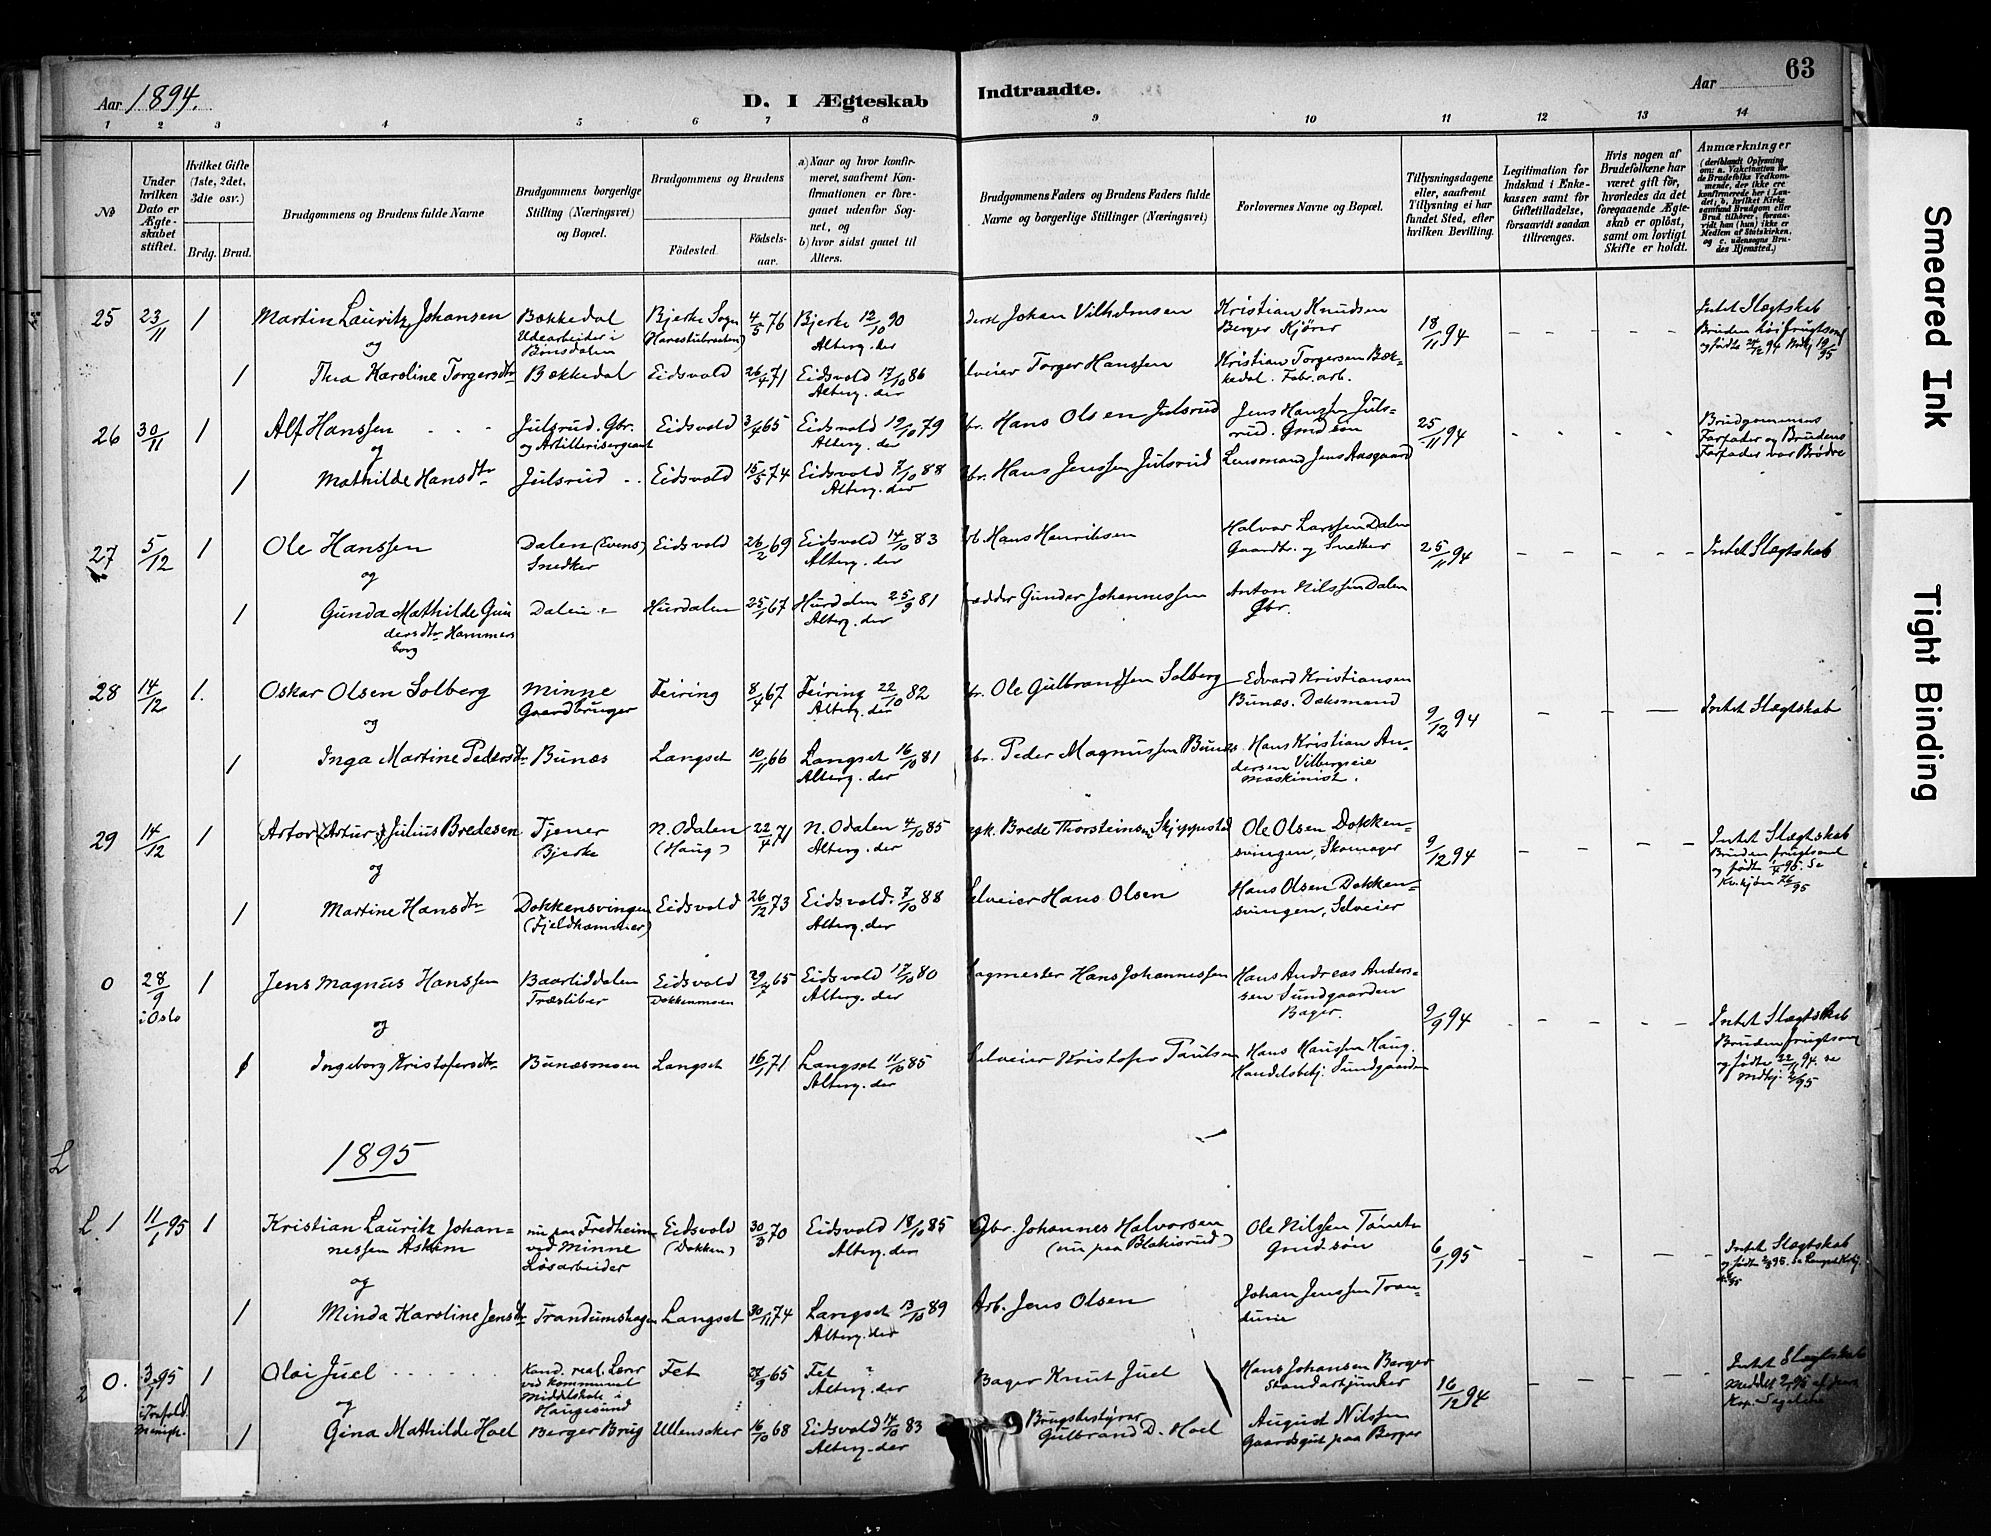 Aar 1894.
D. I Ægteskab
Indtraadte.
Aar
63
1 2 3 4 5 6 7 8 9 10 11 12 13 14
No
Under hvilken Dato er Ægteskabet stiftet.
Hvilket Gifte (1ste, 2det, 3die osv.)
Brdg. Brud.
Brudgommens og Brudens fulde Navne
Brudgommens borgerlige Stilling (Næringsvei) og Bopæl.
Brudgommens og Brudens
Födested.
Födselsaar.
a) Naar og hvor konfirmeret, saafremt Konfirmationen er foregaaet udenfor Sognet, og
b) hvor sidst gaaet til Alters.
Brudgommens Faders og Brudens Faders fulde Navne og borgerlige Stillinger (Næringsvei)
Forlovernes Navne og Bopæl.
Tillysningsdagene eller, saafremt Tillysning ei har fundet Sted, efter hvilken Bevilling.
Legitimation for Indskud i Enkekassen samt for Giftetilladelse, forsaavidt saadan tiltrænges.
Hvis nogen af Brudefolkene har været gift för, hvorledes da det foregaaende Ægteskab er oplöst, samt om lovligt Skifte er holdt.
Anmærkninger
(deriblandt Oplysning om: a. Vakcination for de Brudefolks Vedkommende, der ikke ere konfirmerede her i Landet; b. hvilket Kirkesamfund Brudgom eller Brud tilhörer, forsaavidt han (hun) ikke er Medlem af Statskirken, og c. udensogns Brudes Hjemsted.)
25 23/11 1 Martin Lauritz Johansen Bækkedal Udearbeider i Bjerke Sogn 4/5 76 Bjerke 12/10 90 Alterg. der
Johan Vilhelmsen Kristian Knudsen Berger Kjörer 18/11 94 Intet Slægtskab
og
1 Thea Karoline Torgersdtr Bækkedal Eidsvold 26/4 71 Eidsvold 17/10 86 Alterg. der
Torger Hanssen Kristian Torgersen Bækkedal. Fabr. arb.
26 30/11 1 Alf Hanssen Julsrud. Gbr. og Artillerisergeant Eidsvold 3/4 65 Eidsvold 12/10 79 Alterg. der
Hans Olsen Julsrud Jens Hanssen Julsrud. Gmd sön 25/11 94 Brudgommens Farfader og Brudens Farfader var Brödre
og
1 Mathilde Hansdtr Julsrud Eidsvold 15/5 74 Eidsvold 7/10 88 Alterg. der
Hans Jenssen Julsrud Lensmand Jens Aasgaard
27 5/12 1 Ole Hanssen Dalen (Evens) Snedker Eidsvold 26/2 69 Eidsvold 14/10 83 Alterg. der
Hans Henriksen Halvor Larssen Dalen Gaardbr. og Snedker 25/11 94 Intet Slægtskab
og
1 Gunda Mathilde Gundersdtr Hammersborg Dalen Hurdalen 25/1 67 Hurdalen 25/9 81 Alterg. der
Gunder Johannessen Anton Nilssen Dalen Gbr.
28 14/12 1. Oskar Olsen Solberg Minne Gaardbruger Feiring 8/4 67 Feiring 22/10 82 Alterg. der
Ole Gulbrandssen Solberg Edvard Kristiansen Bunæs. Dæksmand 9/12 94 Intet Slægtskab
og
1 Inga Martine Pedersdtr Bunæs Langset 10/11 66 Langset 16/10 81 Alterg. der
Peder Magnussen Bunæs. Hans Kristian Andersen Vilbergseie Maskinist.
29 14/12 1 (Artor) (Artur) Julius Bredesen Tjener Bjerke N. Odalen (Haug) 22/4 71 N. Odalen 4/10 85 Alterg. der
Brede Thorsteinsen Skjeppestad Ole Olsen Dokkensvingen, Skomager 9/12 94 Intet Slægtskab Bruden frugtsom.
og
1 Martine Hansdtr Dokkensvingen (Fjeldhammer) Eidsvold 26/12 73 Eidsvold. 7/10 88 Alterg. der
Selveier Hans Olsen Hans Olsen Dokkensvingen, Selveier
0 28/9 i Oslo 1 Jens Magnus Hanssen Baarliddalen Træsliber Eidsvold Dokkenmoen 29/7 65 Eidsvold 17/10 80 Alterg. der
Sagmester Hans Johannessen Hans Andreas Anderssen Sundgaarden Bager. 9/9 94 Intet Slægtskab Bruden frugtsom og fødte 22/11 94. se
og
1 Ingeborg Kristofersdtr Bunæsmoen Langset 16/1 71 Langset 11/10 85 Alterg. der
Selveier Kristofer Paulsen Hans Hanssen Haug. Handelsbetj. Sundgaarden
1895
L. 1 11/1 95 1 Kristian Lauritz Johannessen Askim nu paa Fredheim ved Minne Løsarbeider Eidsvold (Dokken) 30/3 70 Eidsvold 18/10 85 Alterg. der
Gbr. Johannes Halvorsen (nu paa Blakisrud) Ole Nilssen Gmd. sön 6/1 95 Intet Slægtskab
og
1 Minda Karoline Jensdtr Trandumshagen Langset 30/11 74 Langset 13/10 89 Alterg. der
Arb. Jens Olsen Johan Jenssen
0. 3/1 95 1 Olai Juel Kand. real. Lærer ved kommunal Middelskole i Haugesund Fet 27/9 65 Fet ? Alterg. der
Bager Knut Juel Hans Johansen Berger Standartjunker 16/12 94 Intet Slægtskab
og
1 Gina Mathilde Hoel Berger Brug Ullensaker 16/10 68 Eidsvold 14/10 83 Alterg. der
Brugsbestyrer Gulbrand D. Hoel August Nilssen Gaardsgut paa Berger
Smeared Ink
Tight Binding